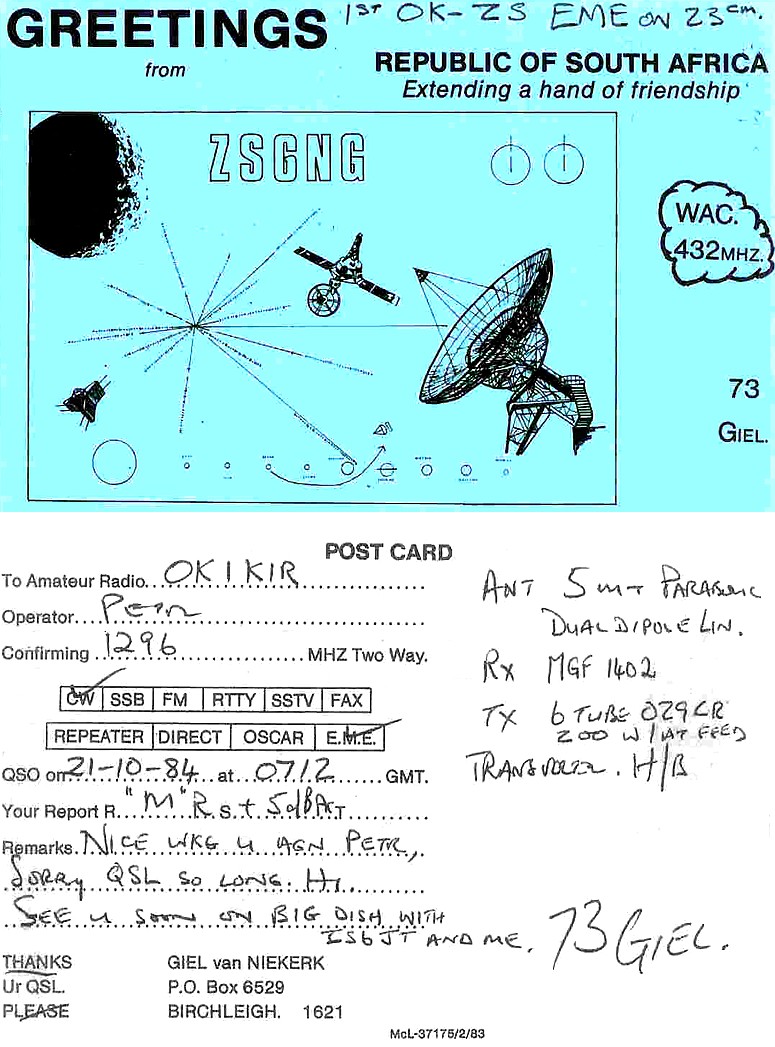 GREETINGS
from
1ST OK-ZS EME ON 23cm.
REPUBLIC OF SOUTH AFRICA
Extending a hand of friendship
ZS6NG
WAC.
432MHZ.
73
GIEL.
POST CARD
To Amateur Radio...OK1KIR
Operator...PETR
Confirming...1296...MHZ Two Way.
CW SSB FM RTTY SSTV FAX
REPEATER DIRECT OSCAR E.M.E.
QSO on 21-10-84 at 0712 GMT.
Your Report R. "M" R S.T 5dB
Remarks. NICE WKG U AGN PETR,
SORRY QSL SO LONG. HI.
SEE U SOON ON BIG DISH WITH
ZS6JT AND ME. 73 GIEL.
ANT 5 MT PARABOLIC
DUAL DIPOLE LIN.
RX MGF 1402
TX 6 TUBE OZ9CR
200 W / AT FEED
TRANSVERTER. H/B
THANKS
Ur QSL.
PLEASE
GIEL van NIEKERK
P.O. Box 6529
BIRCHLEIGH. 1621
McL-37175/2/83